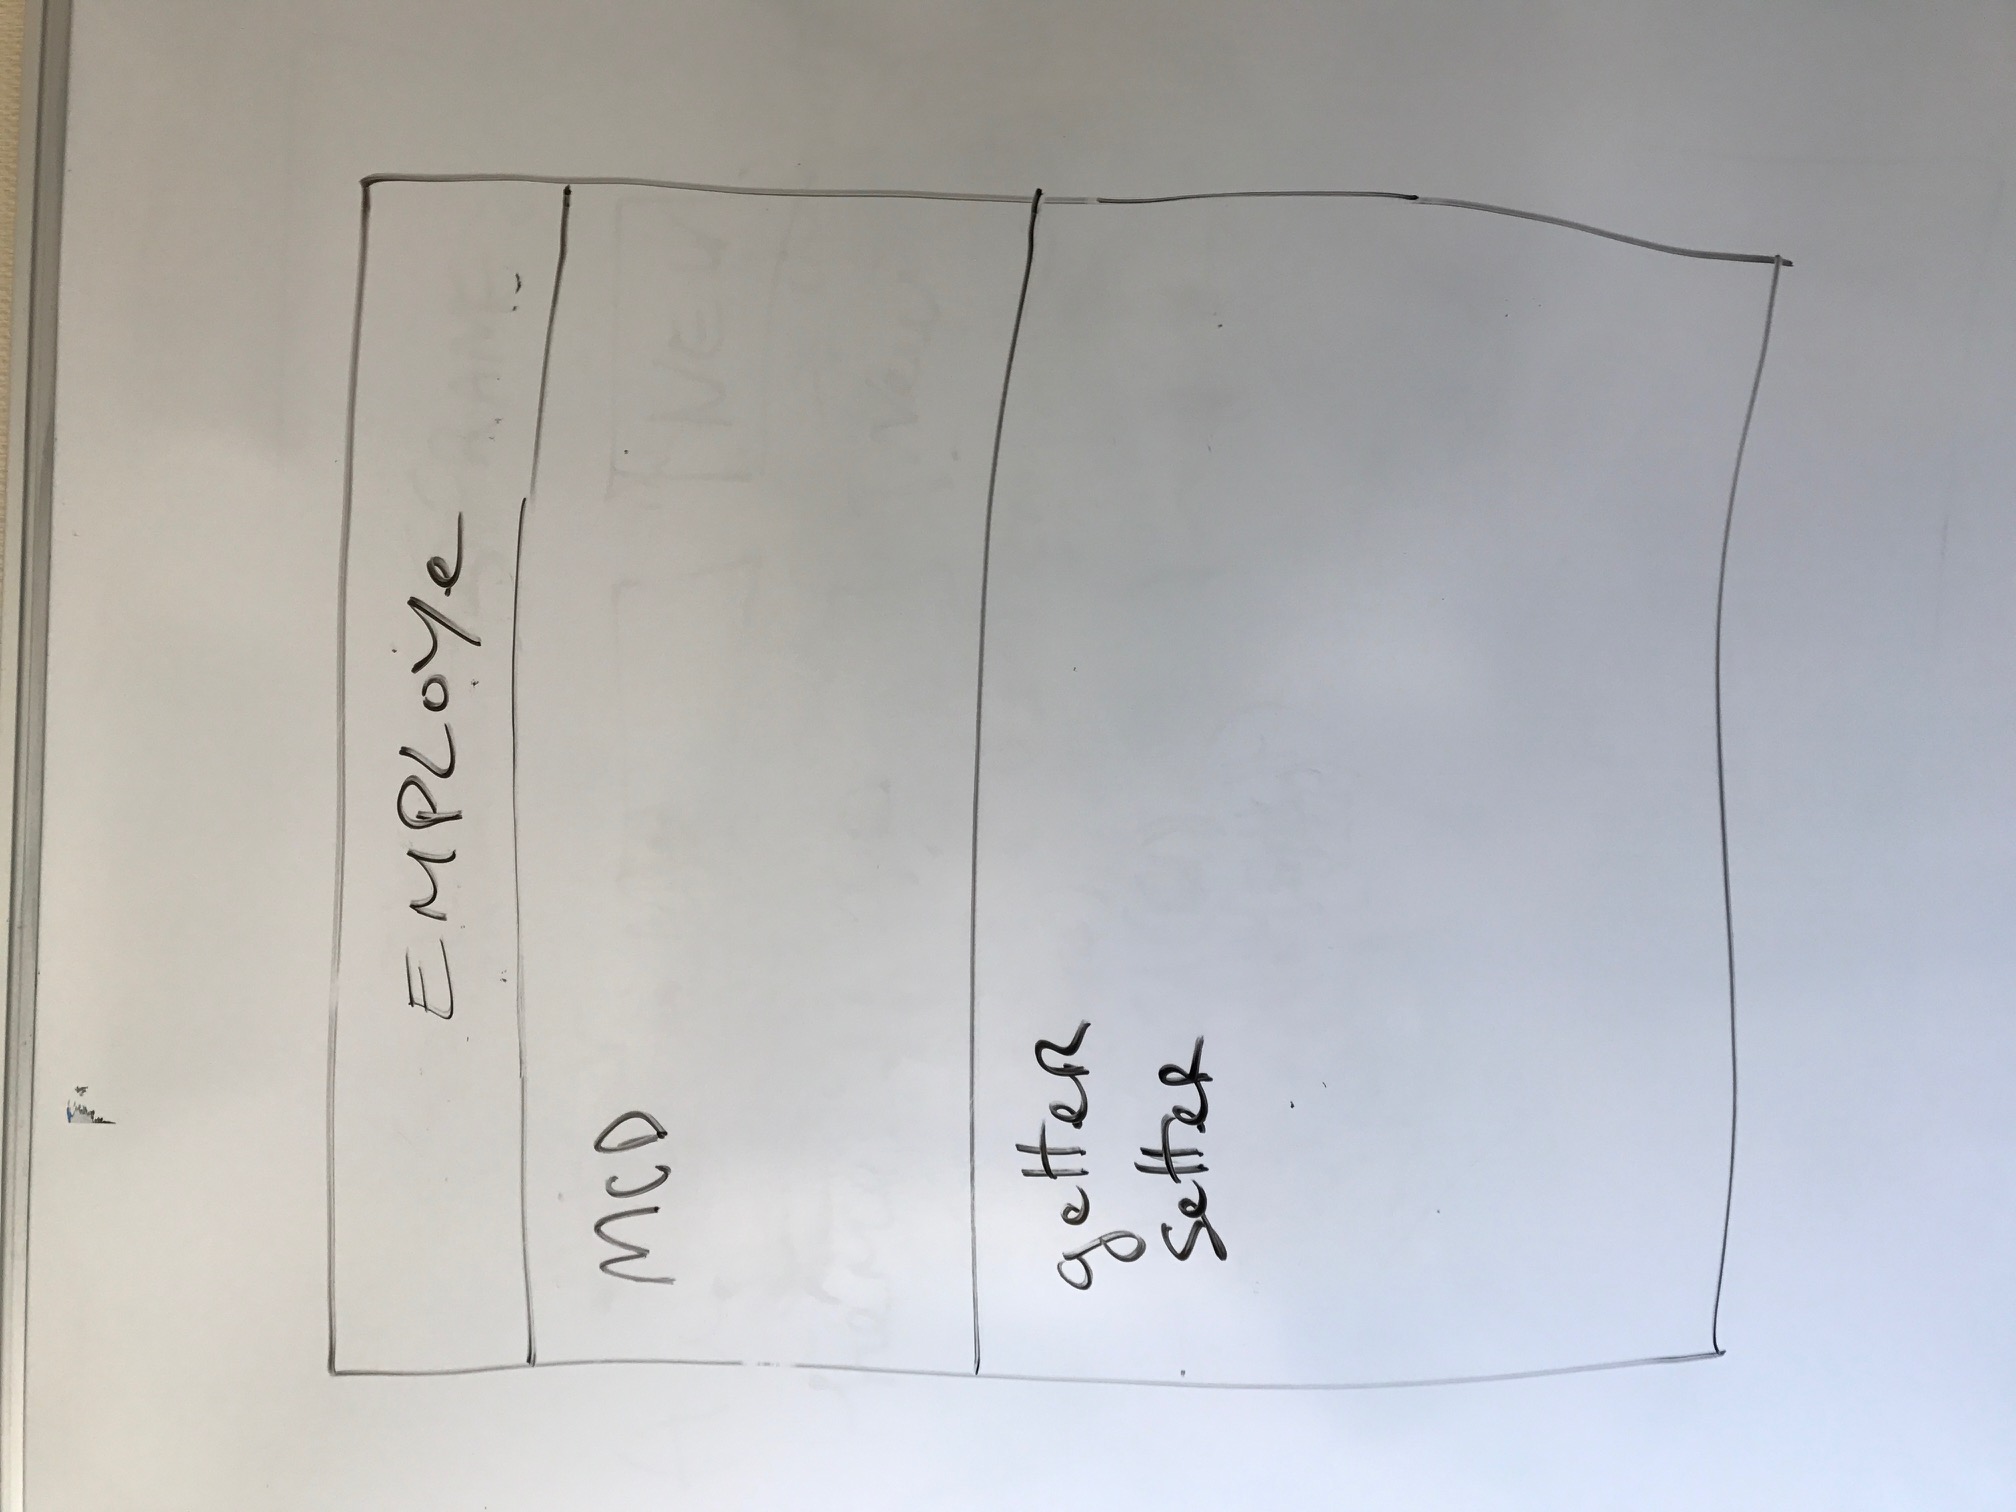 EMPLOYe
MCD
getteR
setteR